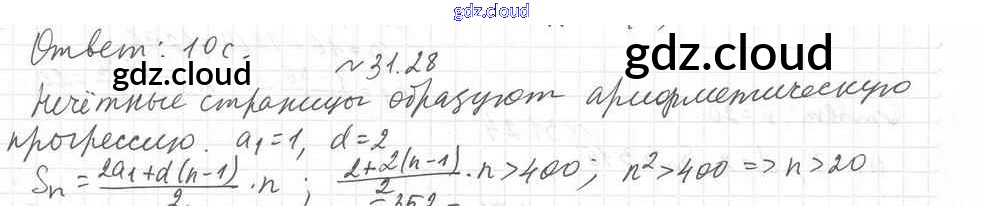 gdz.cloud
Ответ: 10 с.
gdz.cloud
gdz.cloud
№ 31.28
Нечётные страницы образуют арифметическую
прогрессию. a₁=1, d=2
Sₙ = (2a₁+d(n-1))/2 · n ; (2+2(n-1))/2 · n > 400; n² > 400 => n > 20